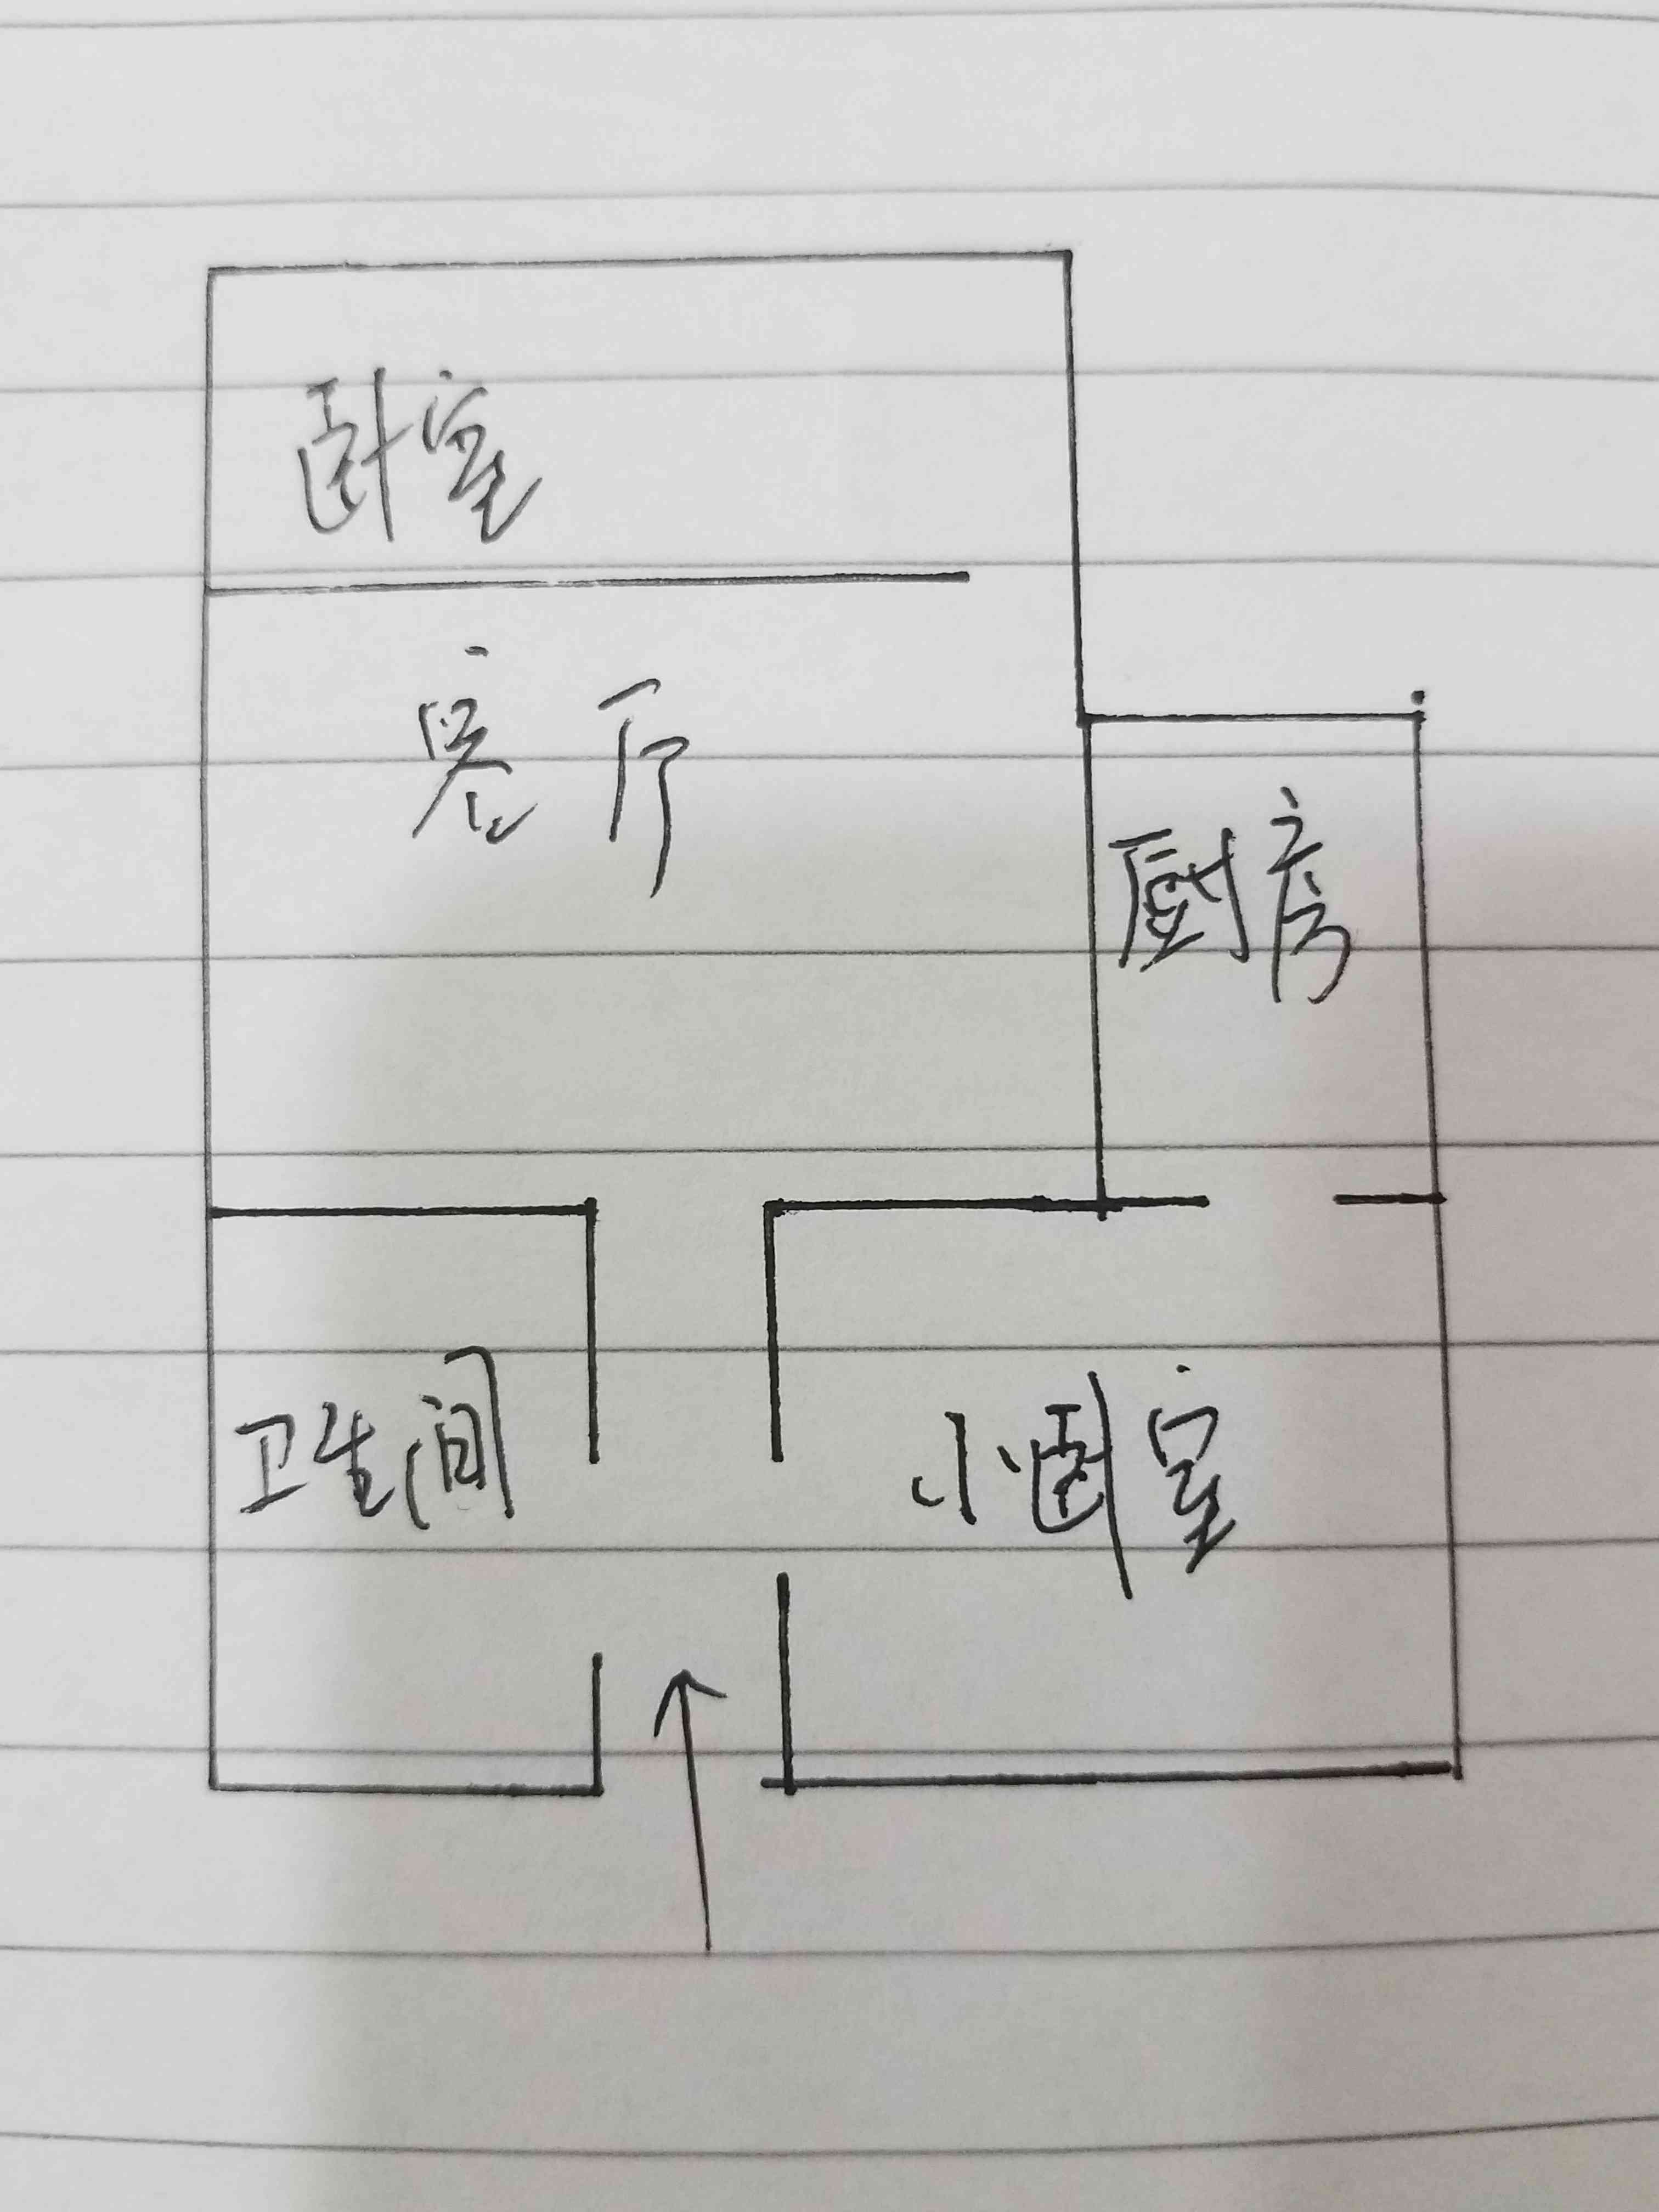 卧室
客厅
厨房
卫生间
小卧室